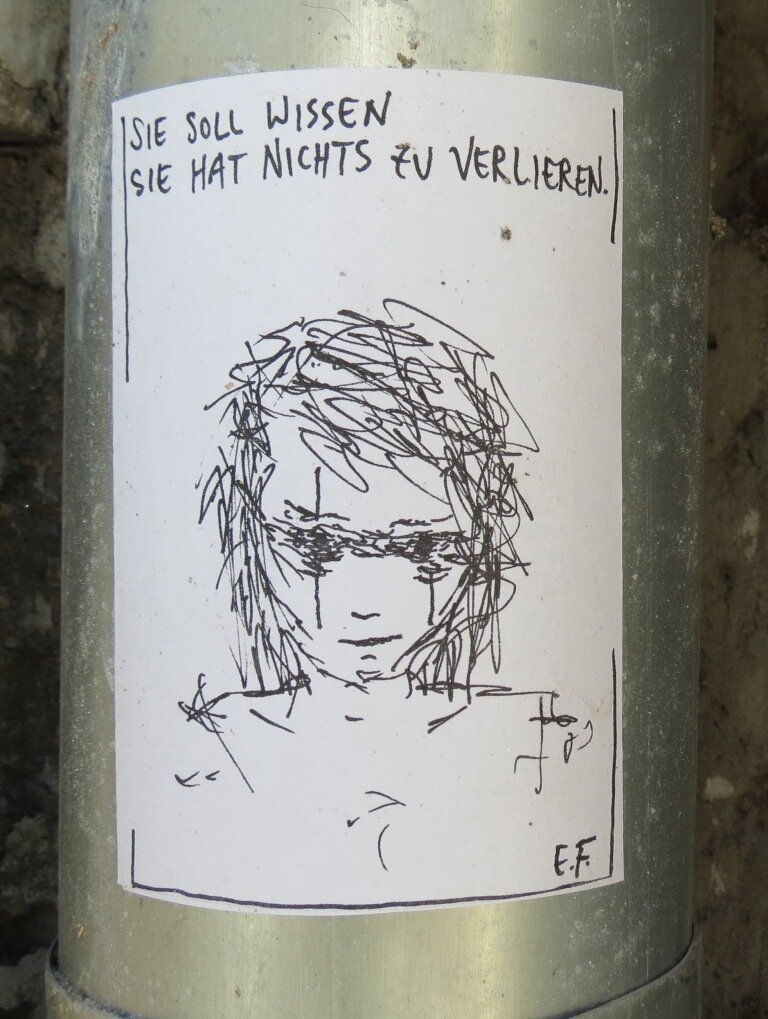 SIE SOLL WISSEN
SIE HAT NICHTS ZU VERLIEREN.
E.F.